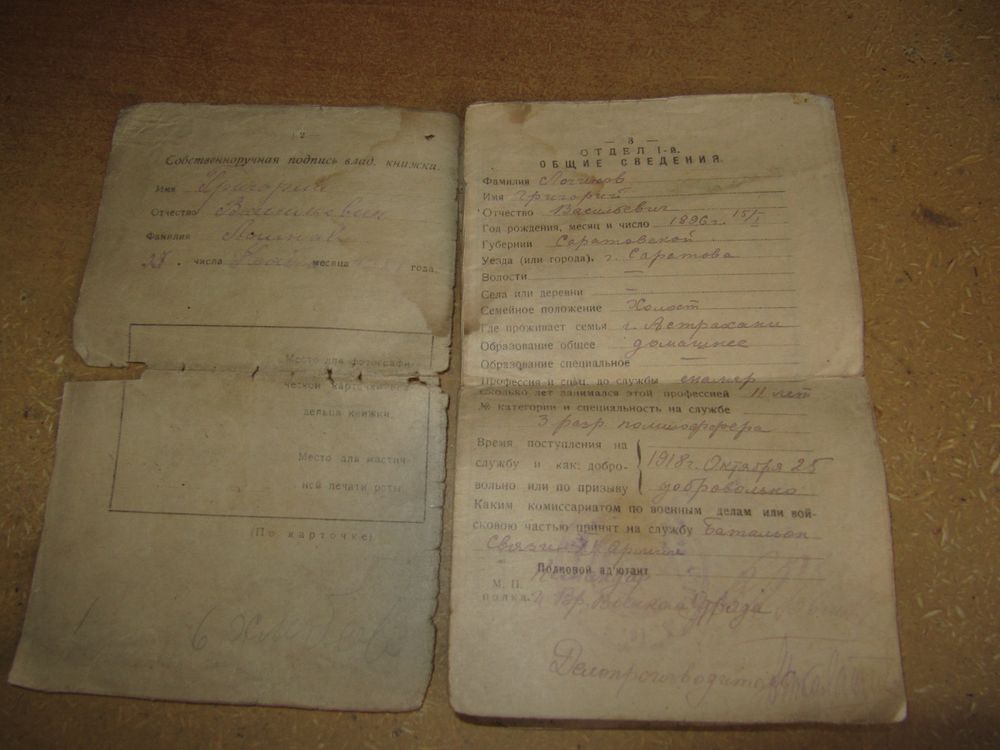 — 2 —
Собственноручная подпись влад. книжки.
Имя Григорий
Отчество
Фамилия
числа месяца года.
Место для фотографи-
ческой карточки вла-
дельца книжки.
Место для мастич-
ной печати роты
(По карточке)
— 3 —
ОТДЕЛ I-й.
ОБЩИЕ СВЕДЕНИЯ.
Фамилия Логинов
Имя Григорий
Отчество Васильевич
Год рождения, месяц и число 1896 г. 15/I
Губернии Саратовской
Уезда (или города). г. Саратова
Волости —
Села или деревни —
Семейное положение Холост
Где проживает семья г. Астрахани
Образование общее домашнее
Образование специальное —
Профессия и спец. до службы
сколько лет занимался этой профессией 11 лет
№ категории и специальность на службе
3 разр.
Время поступления на
службу и как: добро-
вольно или по призыву
1918 г. Октября 25
добровольно
Каким комиссариатом по военным делам или вой-
сковою частью принят на службу Батальон
Связи Армии
Полковой ад'ютант
М. П.
полка.
Делопроизводитель